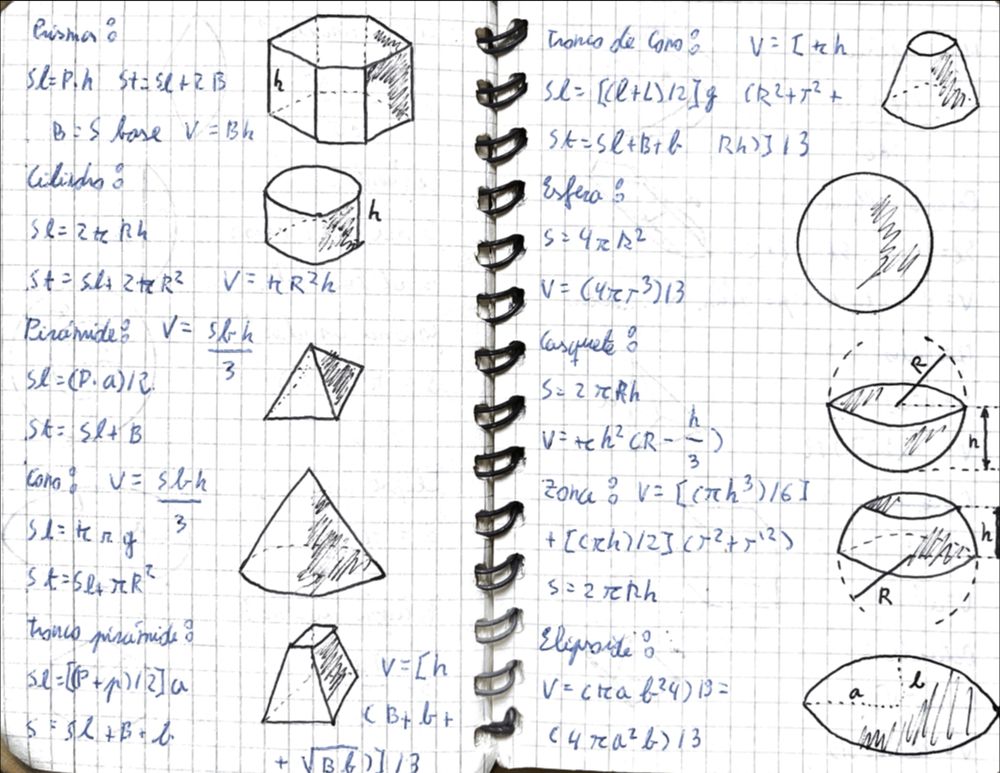 Prisma:
Sl=P.h St=Sl+2B
B=S base V=Bh
h
Cilindro:
Sl=2πRh
h
St=Sl+2πR² V=πR²h
Pirámide: V= Sb h
3
Sl=(P.a)/2
St=Sl+B
Cono: V= Sb h
3
Sl=π r g
St=Sl+πR²
Tronco pirámide:
Sl=[(P+p)/2]a
S=Sl+B+b
V=[h
(B+b+
+√(B b))]/3
Tronco de Cono: V=[πh
Sl=[(l+L)/2]g (R²+r²+
St=Sl+B+b Rh)]/3
Esfera:
S=4πR²
V=(4πr³)/3
Casquete:
S=2πRh
V=πh²(R-h/3)
R
h
Zona: V=[(πh³)/6]
+[(πh)/2](r²+r'²)
S=2πRh
h
R
Elipsoide:
V=(πa b²4)/3=
(4πa²b)/3
a b